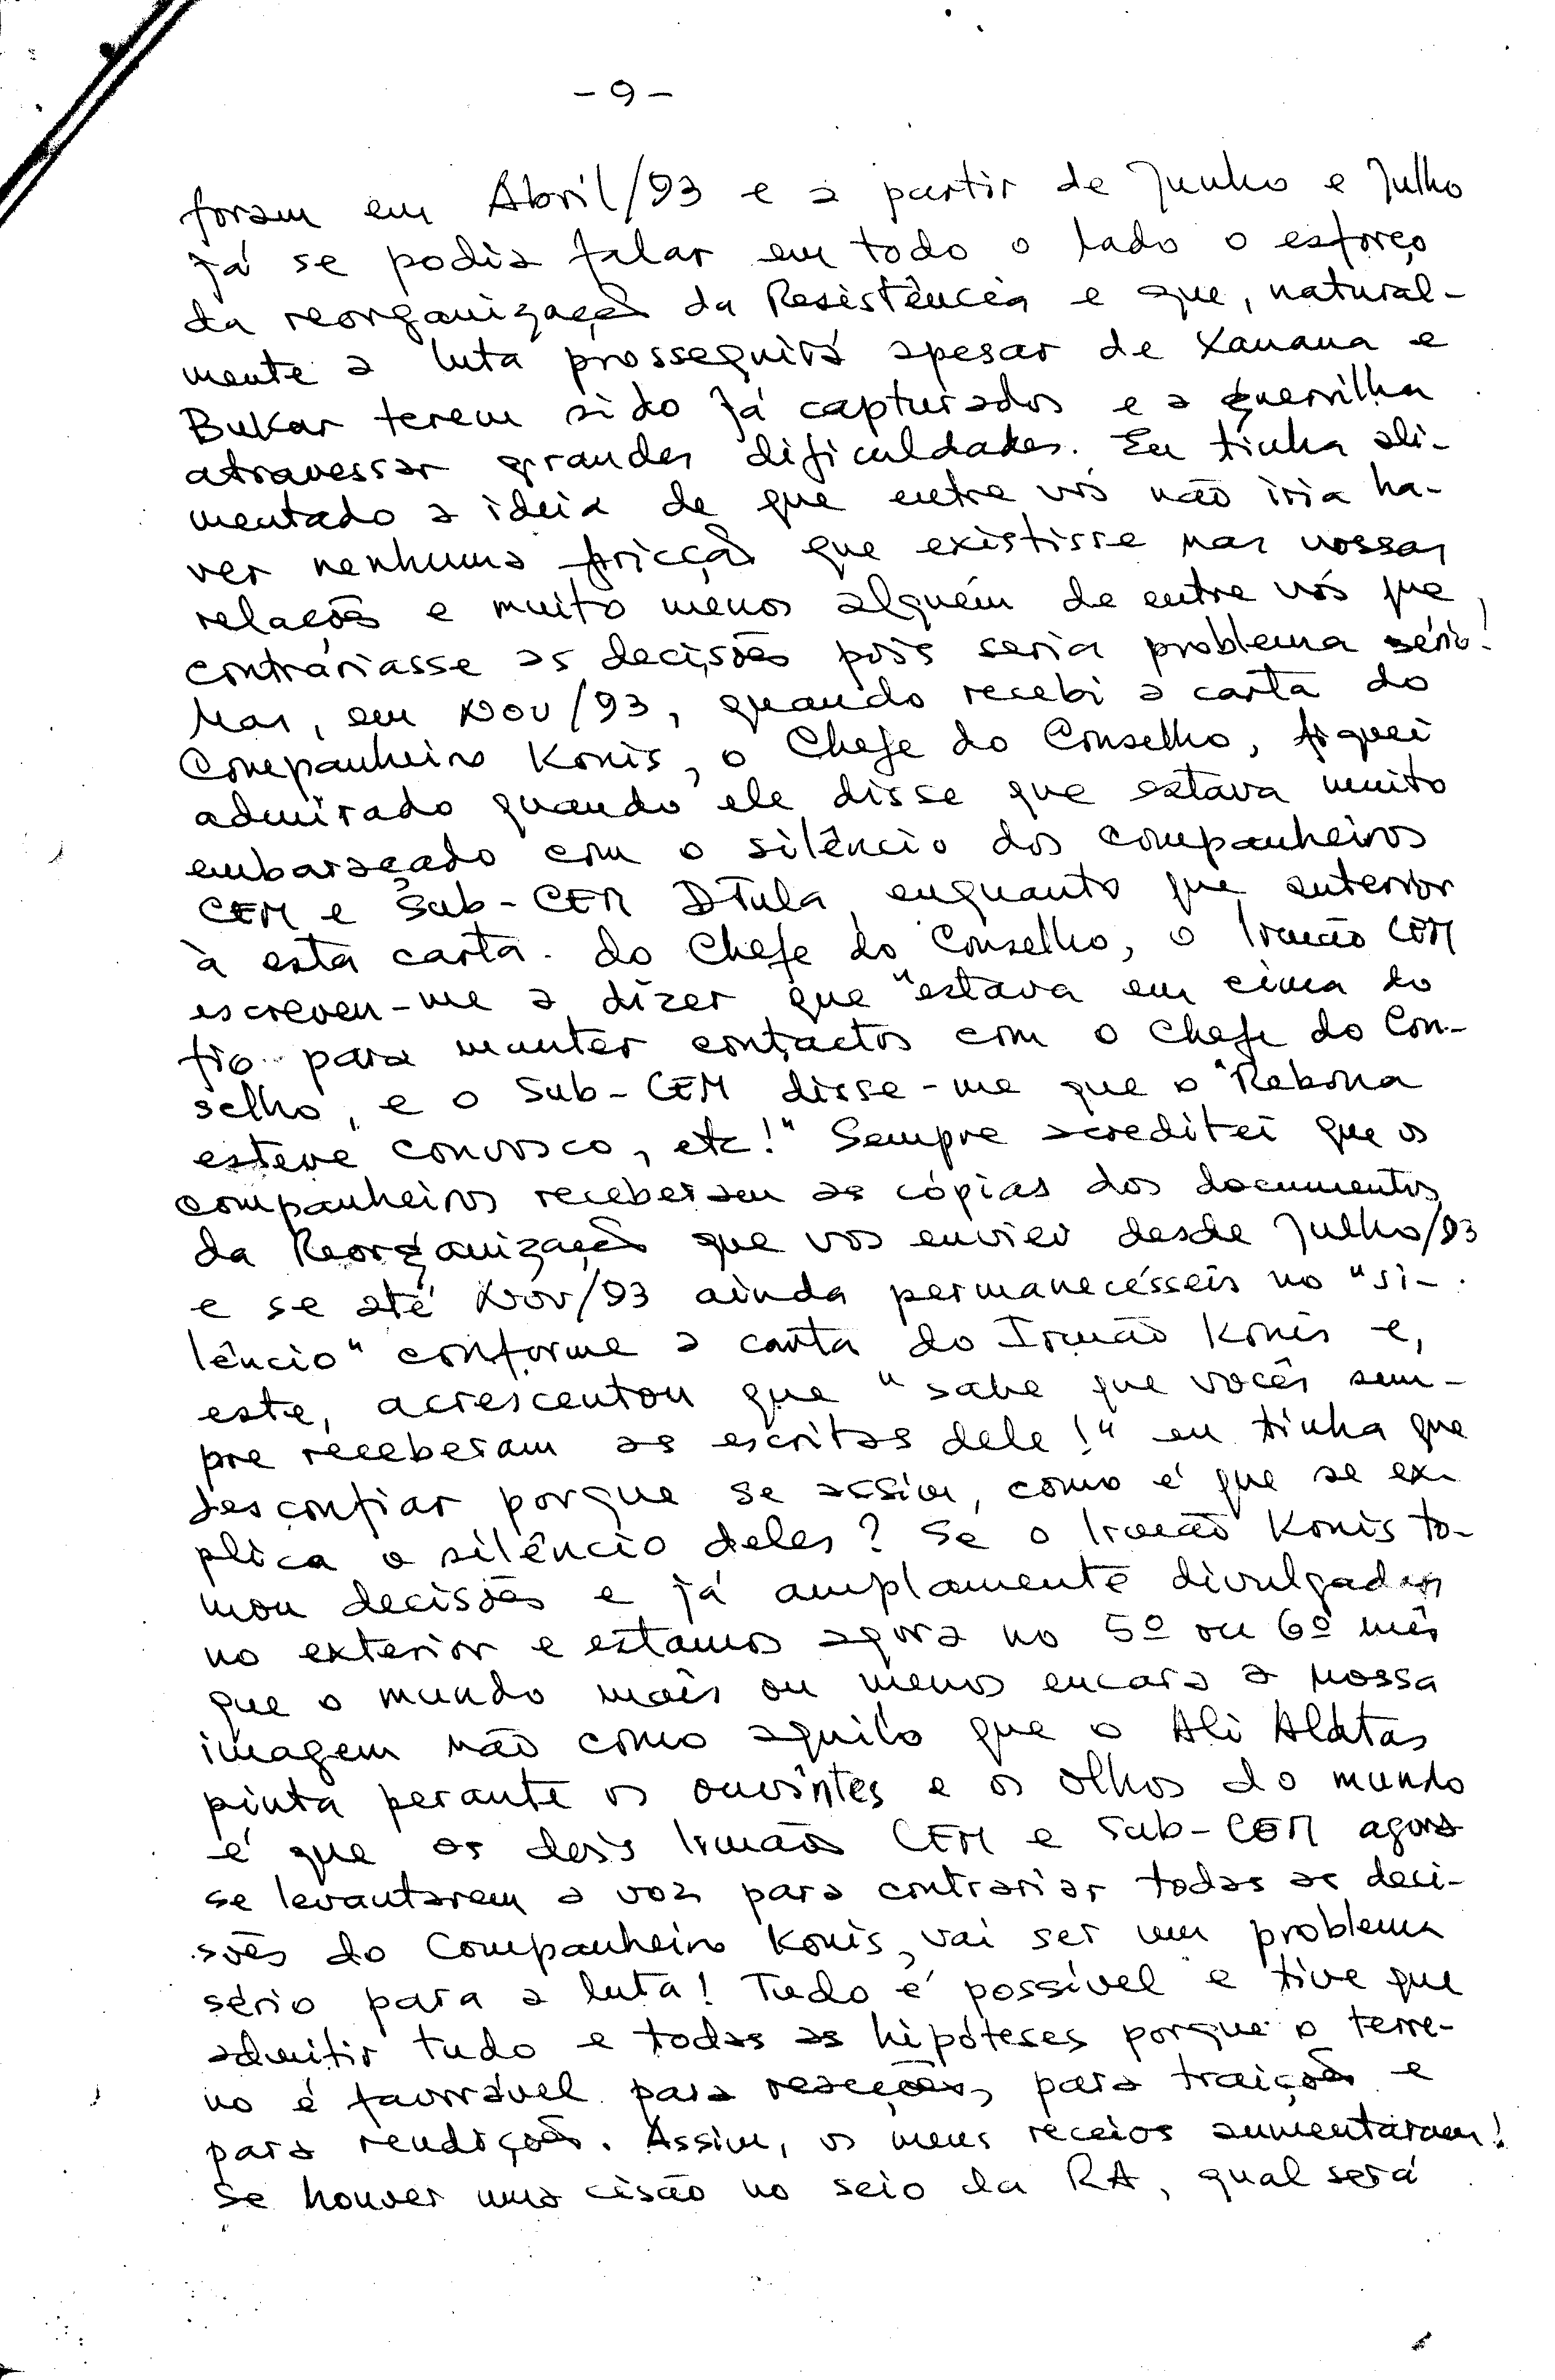 - 9 -
foram em Abril/93 e a partir de Junho e Julho
já se podia falar em todo o lado o esforço
da reorganização da Resistência e que, natural-
mente a luta prosseguirá apesar de Xanana e
Bukar terem sido já capturados e a guerrilha
atravessar grandes dificuldades. Eu tinha ali-
mentado a ideia de que entre vós não iria ha-
ver nenhuma fricção que existisse nas vossas
relações e muito menos alguém de entre vós que
contrariasse as decisões pois seria problema sério!
Mas, em Nov/93, quando recebi a carta do
Companheiro Konis, o Chefe do Conselho, fiquei
admirado quando ele disse que estava muito
embaraçado com o silêncio dos companheiros
CEM e Sub-CEM DTula, enquanto que anterior
à esta carta do Chefe do Conselho, o Irmão CEM
escreveu-me a dizer que "estava em cima do
fio para manter contactos com o Chefe do Con-
selho, e o Sub-CEM disse-me que o "Rebona
esteve convosco, etc!" Sempre acreditei que os
companheiros receberam as cópias dos documentos
da Reorganização que vos enviei desde Julho/93
e se até Nov/93 ainda permanecésseis no "si-
lêncio" conforme a carta do Irmão Konis e,
este, acrescentou que "sabe que vocês sem-
pre receberam as escritas dele!" eu tinha que
desconfiar porque se assim, como é que se ex-
plica o silêncio deles? Se o Irmão Konis to-
mou decisões e já amplamente divulgadas
no exterior e estamos agora no 5º ou 6º mês
que o mundo mais ou menos encara a nossa
imagem não como aquilo que o Ali Alatas
pinta perante os ouvintes e os olhos do mundo
é que os dois Irmãos CEM e Sub-CEM agora
se levantarem a voz para contrariar todas as deci-
sões do Companheiro Konis, vai ser um problema
sério para a luta! Tudo é possível e tive que
admitir tudo e todas as hipóteses porque o terre-
no é favorável para reacções, para traições e
para rendições. Assim, os meus receios aumentaram!
Se houver uma cisão no seio da RA, qual será